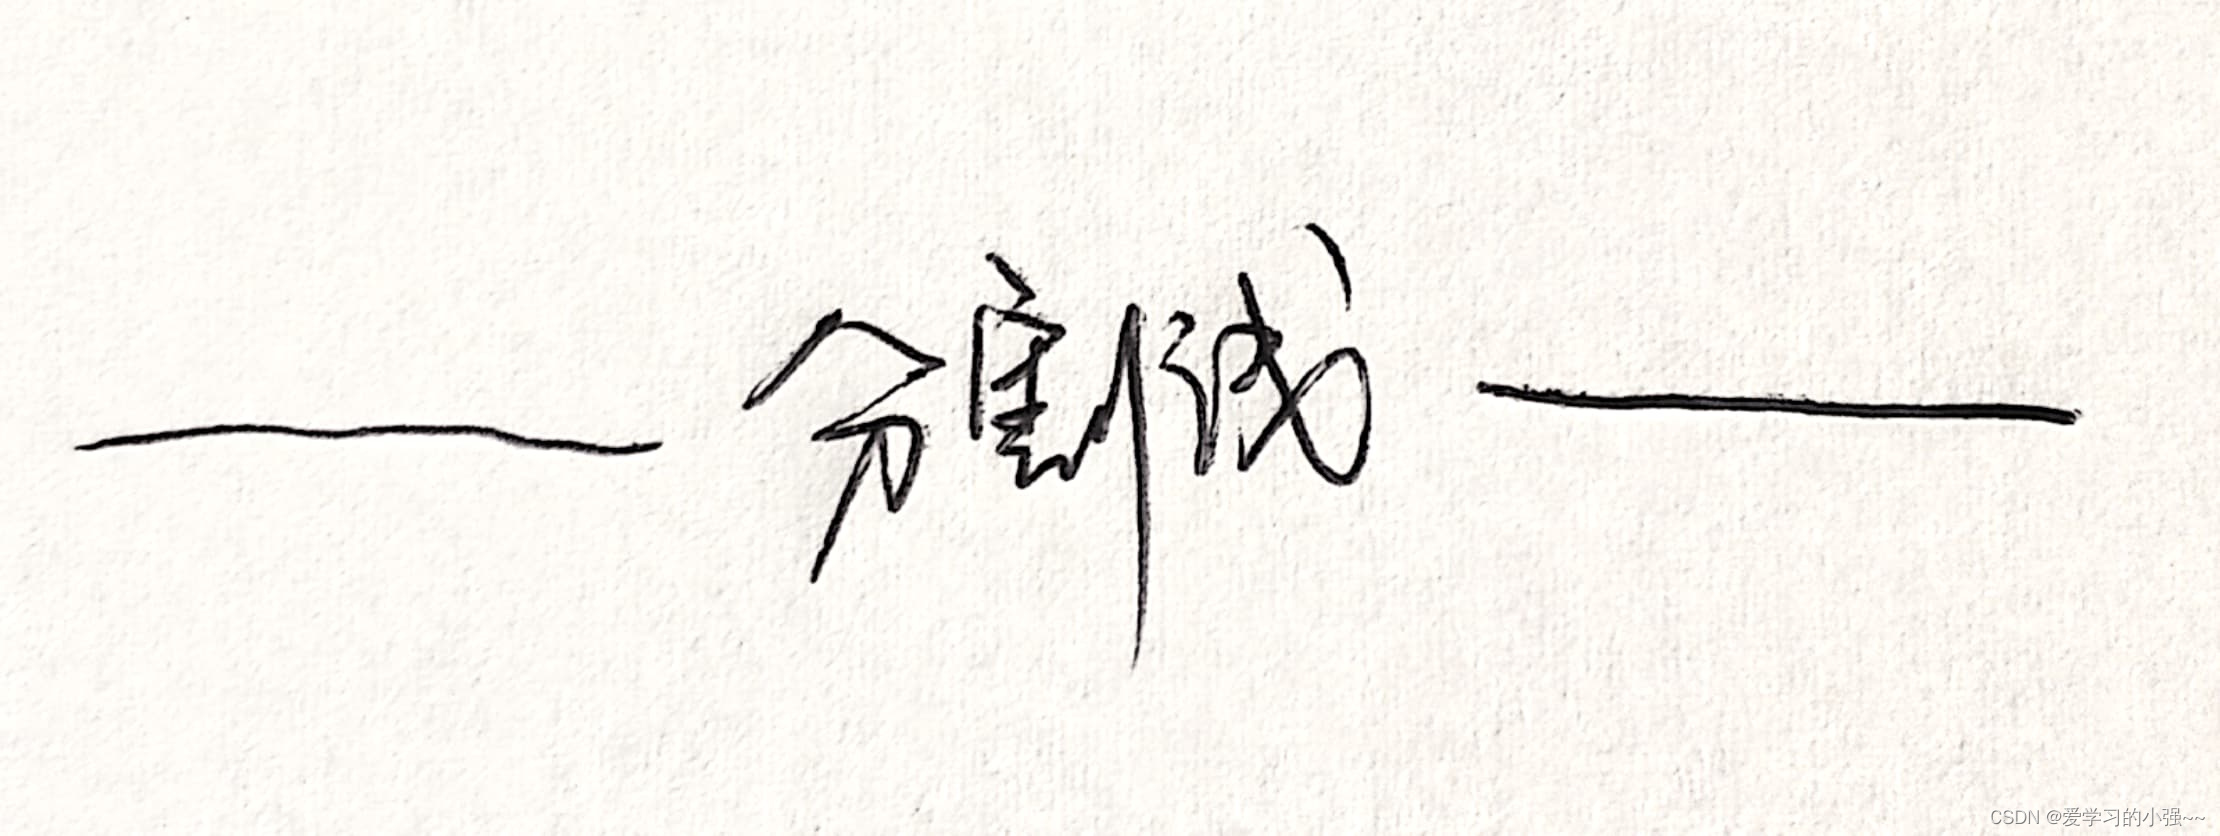 —— 分割线 ——
CSDN @爱学习的小强~~